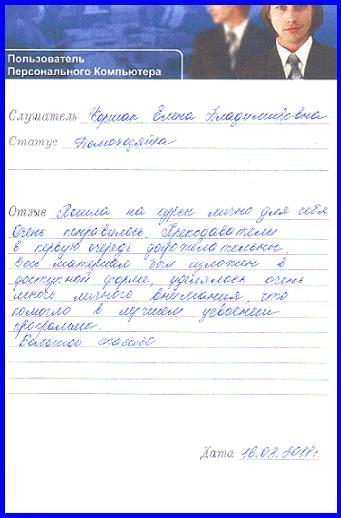 Пользователь
Персонального Компьютера
Слушатель Коршак Елена Владимировна
Статус Домохозяйка
Отзыв Пошла на курсы лично для себя
Очень понравилось. Преподаватели
в первую очередь доброжелательны.
Весь материал был изложен в
доступной форме, уделялось очень
много личного внимания, что
помогло в лучшем усвоении
программы.
Большое спасибо
Дата 16.03.2011г.